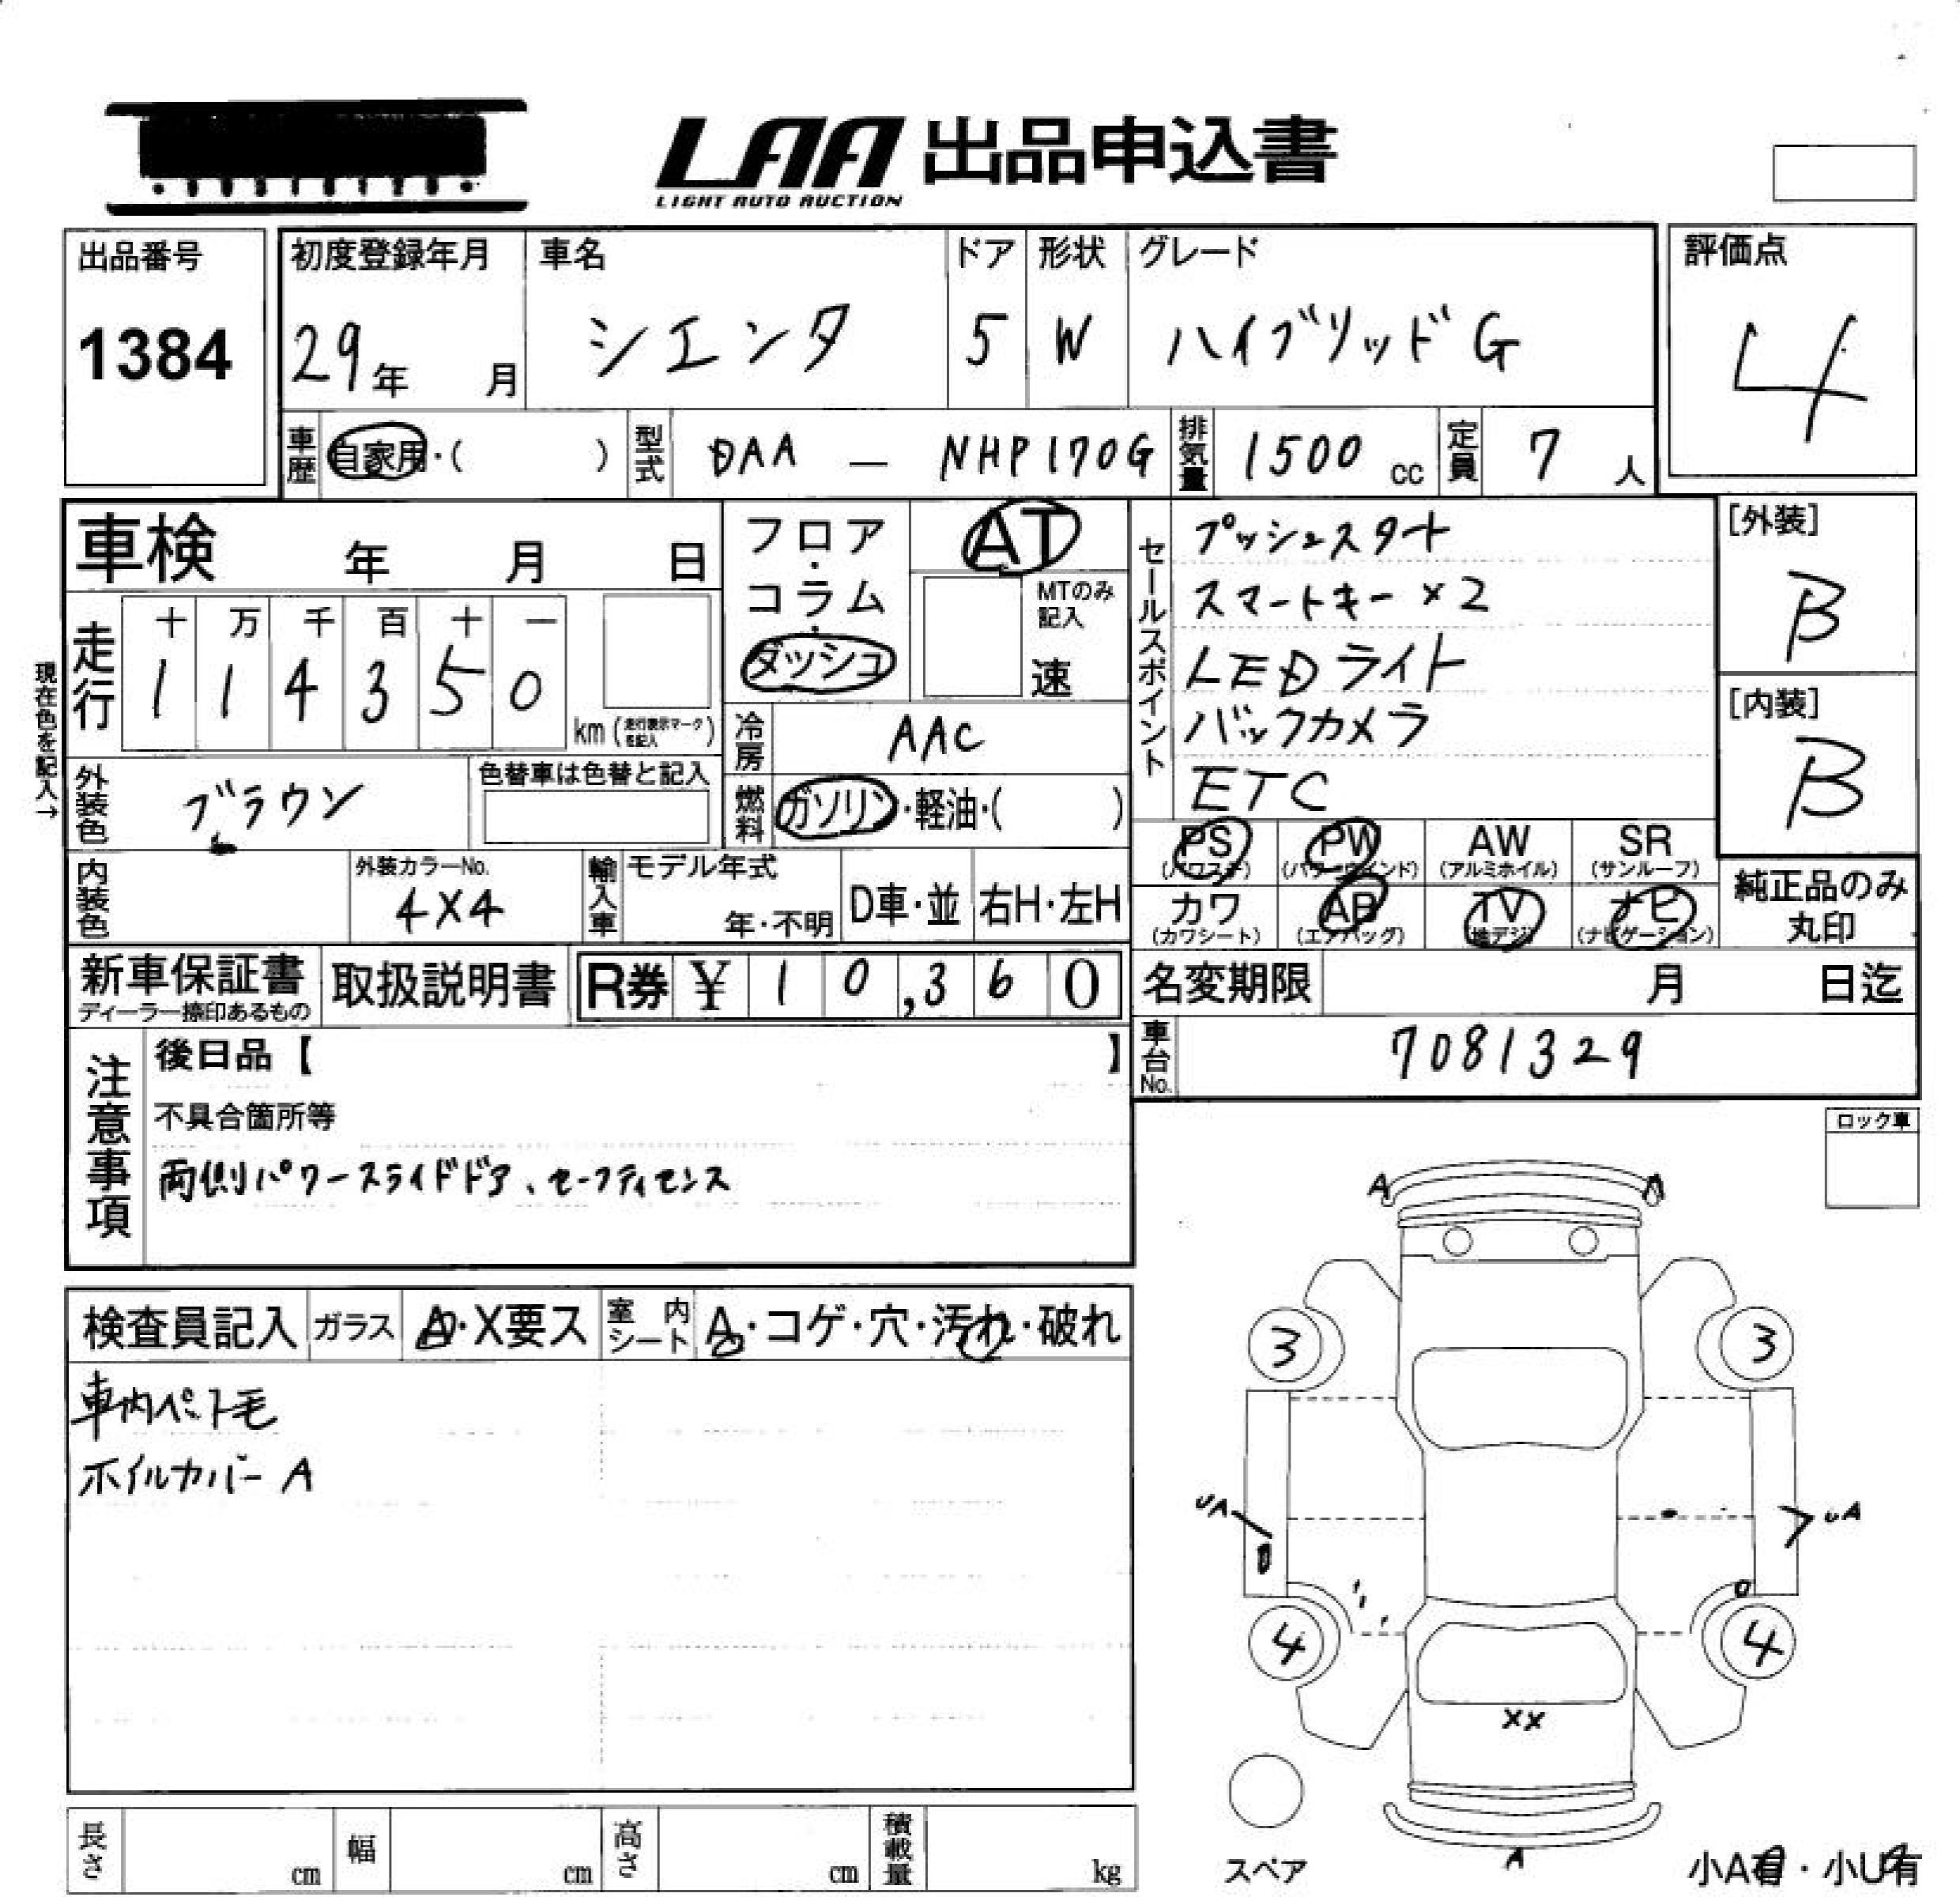 LAA 出品申込書
LIGHT AUTO AUCTION
出品番号
1384
初度登録年月
29年 月
車名
シエンタ
ドア
5
形状
W
グレード
ハイブリッドG
評価点
4
車歴 自家用・( )
型式 DAA — NHP170G
排気量 1500 cc
定員 7 人
車検 年 月 日
走行 十 万 千 百 十 一
1 1 4 3 5 0
km (走行表示マークを記入)
現在色を記入→
フロア・コラム・ダッシュ
AT
MTのみ記入
速
冷房 AAC
燃料 ガソリン・軽油・( )
外装色 ブラウン
色替車は色替と記入
内装色
外装カラーNo.
4X4
輸入車
モデル年式
年・不明
D車・並
右H・左H
セールスポイント
プッシュスタート
スマートキー×2
LEDライト
バックカメラ
ETC
[外装]
B
[内装]
B
PS (パワステ)
PW (パワーウインド)
AW (アルミホイル)
SR (サンルーフ)
カワ (カワシート)
AB (エアバッグ)
TV (地デジ)
ナビ (ナビゲーション)
純正品のみ丸印
新車保証書
ディーラー捺印あるもの
取扱説明書
R券 ¥ 1 0,3 6 0
名変期限 月 日迄
車台No. 7081329
注意事項
後日品【 】
不具合箇所等
両側パワースライドドア、セーフティセンス
ロック車
検査員記入
ガラス A・X要ス
室内シート A・コゲ・穴・汚れ・破れ
車内ペット毛
ホイルカバーA
A A
3 3
UA UA
4 4
XX
A
スペア
小A有・小U有
長さ cm
幅 cm
高さ cm
積載量 kg